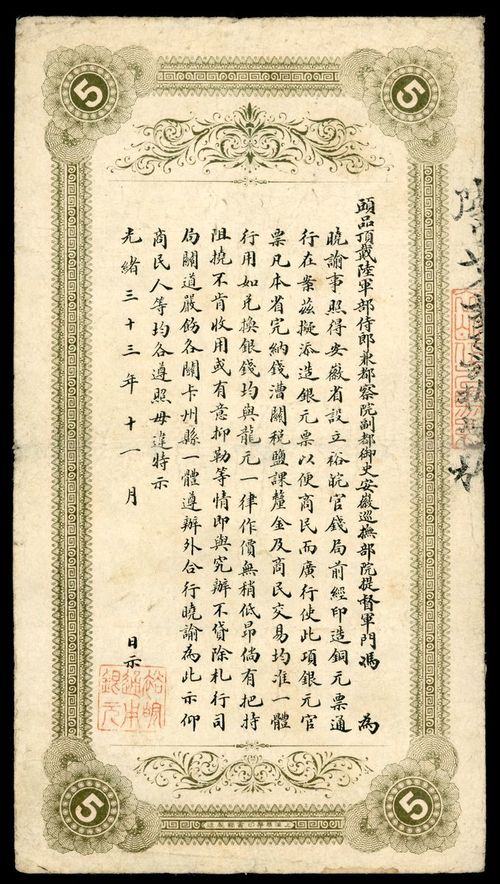 5
5
頭品頂戴陸軍部侍郎兼都察院副都御史安徽巡撫部院提督軍門馮 為
曉諭事照得安徽省設立裕皖官錢局前經印造銅元票通
行在案茲擬添造銀元票以便商民而廣行使此項銀元官
票凡本省完納錢漕關稅鹽課釐金及商民交易均准一體
行用如兌換銀錢均與龍元一律作價無稍低昂倘有把持
阻撓不肯收用或有意抑勒等情即與究辦不貸除札行司
局關道嚴飭各關卡州縣一體遵辦外合行曉諭為此示仰
商民人等均各遵照毋違特示
光緒三十三年十一月 日示
5
5